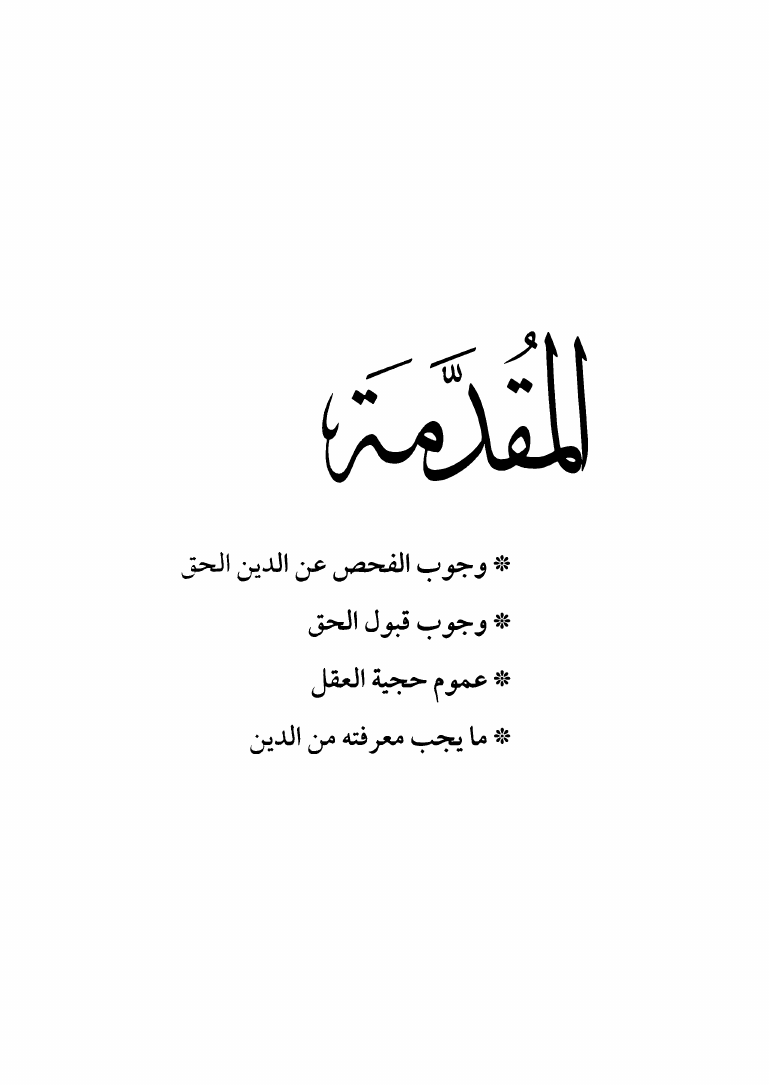 المُقدَّمَة
❊ وجوب الفحص عن الدين الحق
❊ وجوب قبول الحق
❊ عموم حجية العقل
❊ ما يجب معرفته من الدين